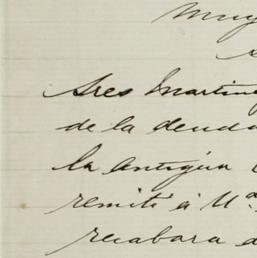 Muy
Sres Martin
de la deuda
la antigua
remití á U.
recabara d